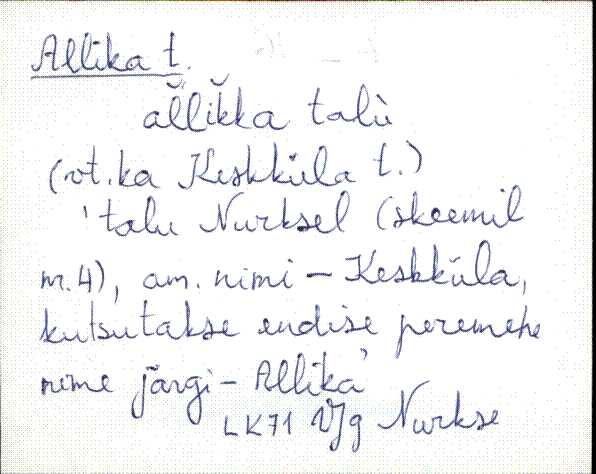 Allika t.
ăllĭkka talù
(vt.ka Keskküla t.)
'talu Nurksel (skeemil
nr.4), am. nimi – Keskküla,
kutsutakse endise peremehe
nime järgi – Allika'
LK71 Vig Nurkse